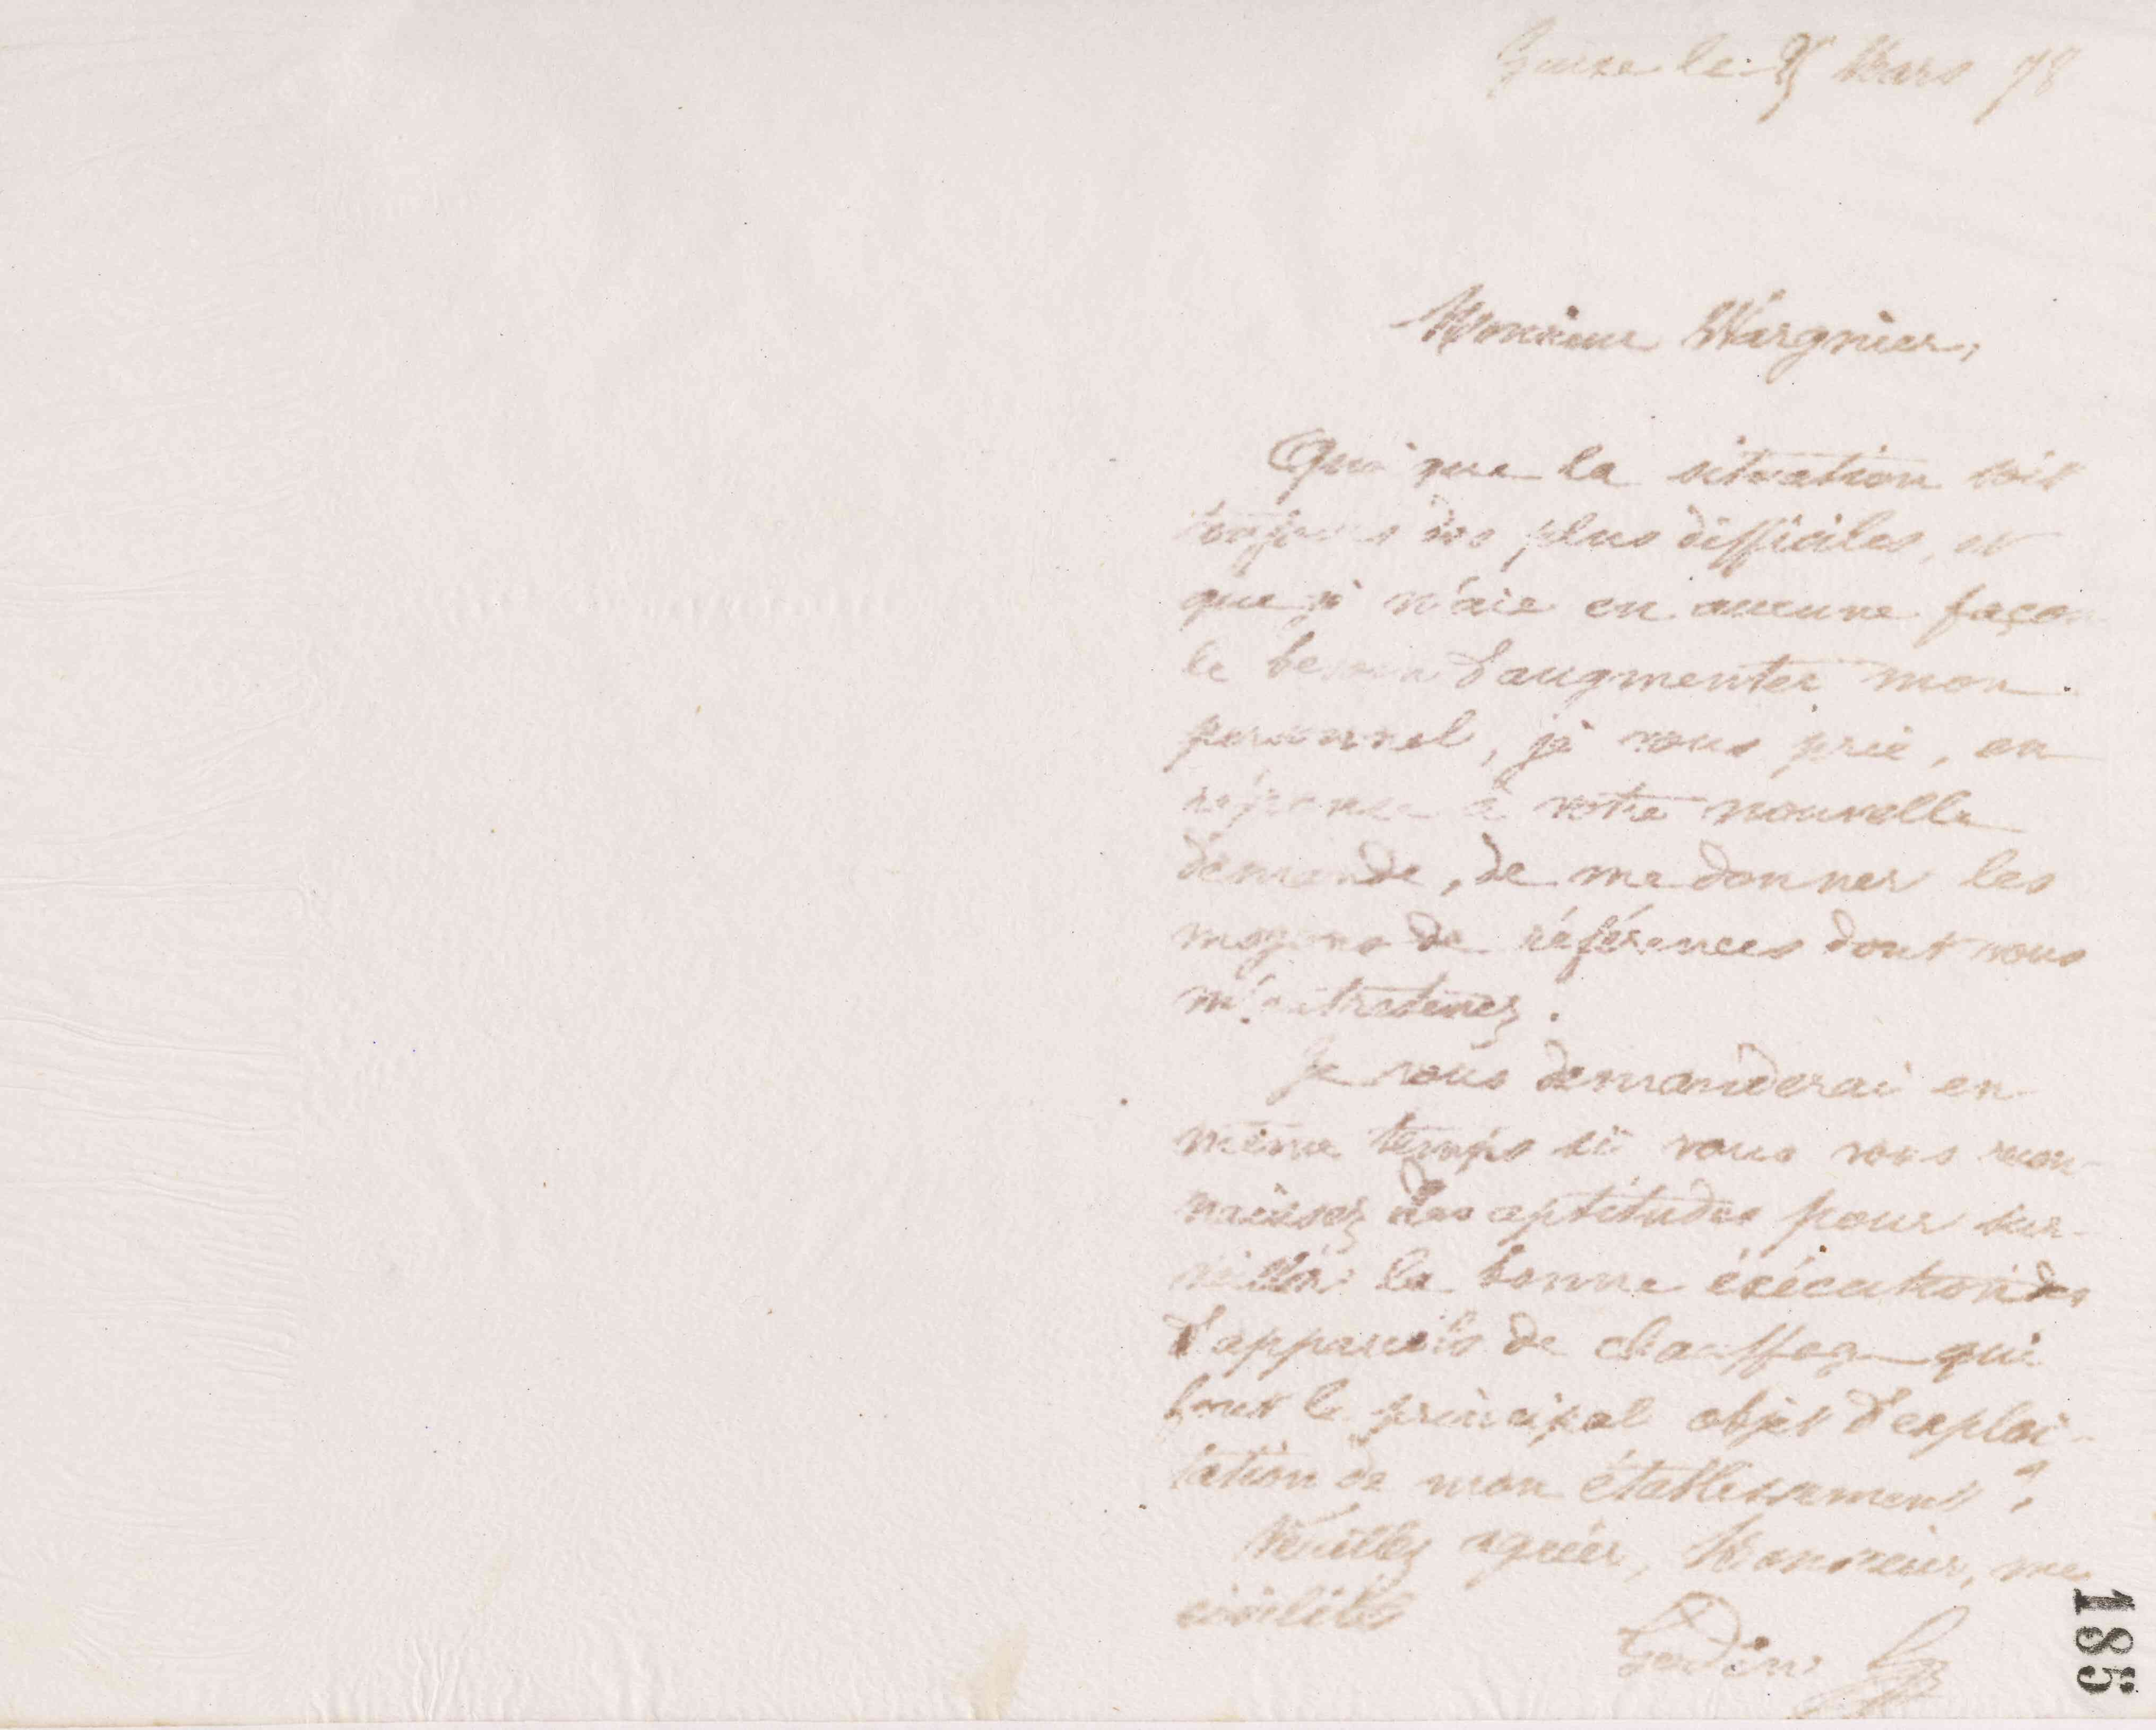 Guise le Mars 78
Monsieur Wargnier,
Quoique la situation soit
toujours des plus difficiles, et
que je n'aie en aucune façon
le besoin d'augmenter mon
personnel, je vous prie, en
réponse à votre nouvelle
demande, de me donner les
moyens de références dont vous
m'entretenez.
Je vous demanderai en
même temps si vous vous recon-
naissez des aptitudes pour sur-
veiller la bonne exécution des
d'appareils de chauffage qui
font le principal objet d'exploi-
tation de mon établissement ?
Veuillez agréer, Monsieur, mes
civilités
Godin
185